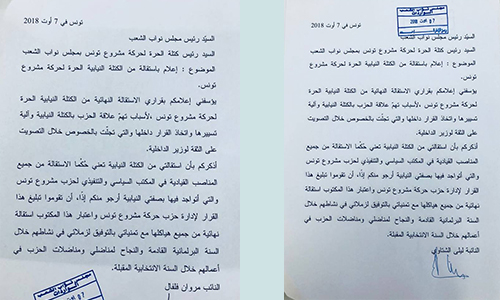 تونس في 7 أوت 2018
السيّد رئيس مجلس نواب الشعب
السيد رئيس كتلة الحرة لحركة مشروع تونس بمجلس نواب الشعب
الموضوع : إعلام باستقالة من الكتلة النيابية الحرة لحركة مشروع
تونس.
يؤسفني إعلامكم بقراري الاستقالة النهائية من الكتلة النيابية الحرة
لحركة مشروع تونس ،لأسباب تهمّ علاقة الحزب بالكتلة النيابية وآلية
تسييرها واتخاذ القرار داخلها والتي تجلّت بالخصوص خلال التصويت
على الثقة لوزير الداخلية.
أذكركم بأن استقالتي من الكتلة النيابية تعني حُكما الاستقالة من جميع
المناصب القيادية في المكتب السياسي والتنفيذي لحزب مشروع تونس
والتي أتواجد فيها بصفتي النيابية أرجو منكم إذًا، أن تقوموا بتبليغ هذا
القرار لإدارة حزب حركة مشروع تونس واعتبار هذا المكتوب استقالة
نهائية من جميع هياكلها مع تمنياتي بالتوفيق لزملائي في نشاطهم خلال
السنة البرلمانية القادمة والنجاح لمناضلي ومناضلات الحزب في
أعمالهم خلال السنة الانتخابية المقبلة.
النائب مروان فلفال
مجلس نواب الشعب
الـواردات
07 أوت 2018
تونس في 7 أوت 2018
مجلس نواب الشعب
الـواردات
07 أوت 2018
السيّد رئيس مجلس نواب الشعب
السيد رئيس كتلة الحرة لحركة مشروع تونس بمجلس نواب الشعب
الموضوع : إعلام باستقالة من الكتلة النيابية الحرة لحركة مشروع
تونس.
يؤسفني إعلامكم بقراري الاستقالة النهائية من الكتلة النيابية الحرة
لحركة مشروع تونس ،لأسباب تهمّ علاقة الحزب بالكتلة النيابية وآلية
تسييرها واتخاذ القرار داخلها والتي تجلّت بالخصوص خلال التصويت
على الثقة لوزير الداخلية.
أذكركم بأن استقالتي من الكتلة النيابية تعني حُكما الاستقالة من جميع
المناصب القيادية في المكتب السياسي والتنفيذي لحزب مشروع تونس
والتي أتواجد فيها بصفتي النيابية أرجو منكم إذًا، أن تقوموا تبليغ هذا
القرار لإدارة حزب حركة مشروع تونس واعتبار هذا المكتوب استقالة
نهائية من جميع هياكلها مع تمنياتي بالتوفيق لزملائي في نشاطهم خلال
السنة البرلمانية القادمة والنجاح لمناضلي ومناضلات الحزب في
أعمالهم خلال السنة الانتخابية المقبلة.
النائبة ليلى الشتاوي